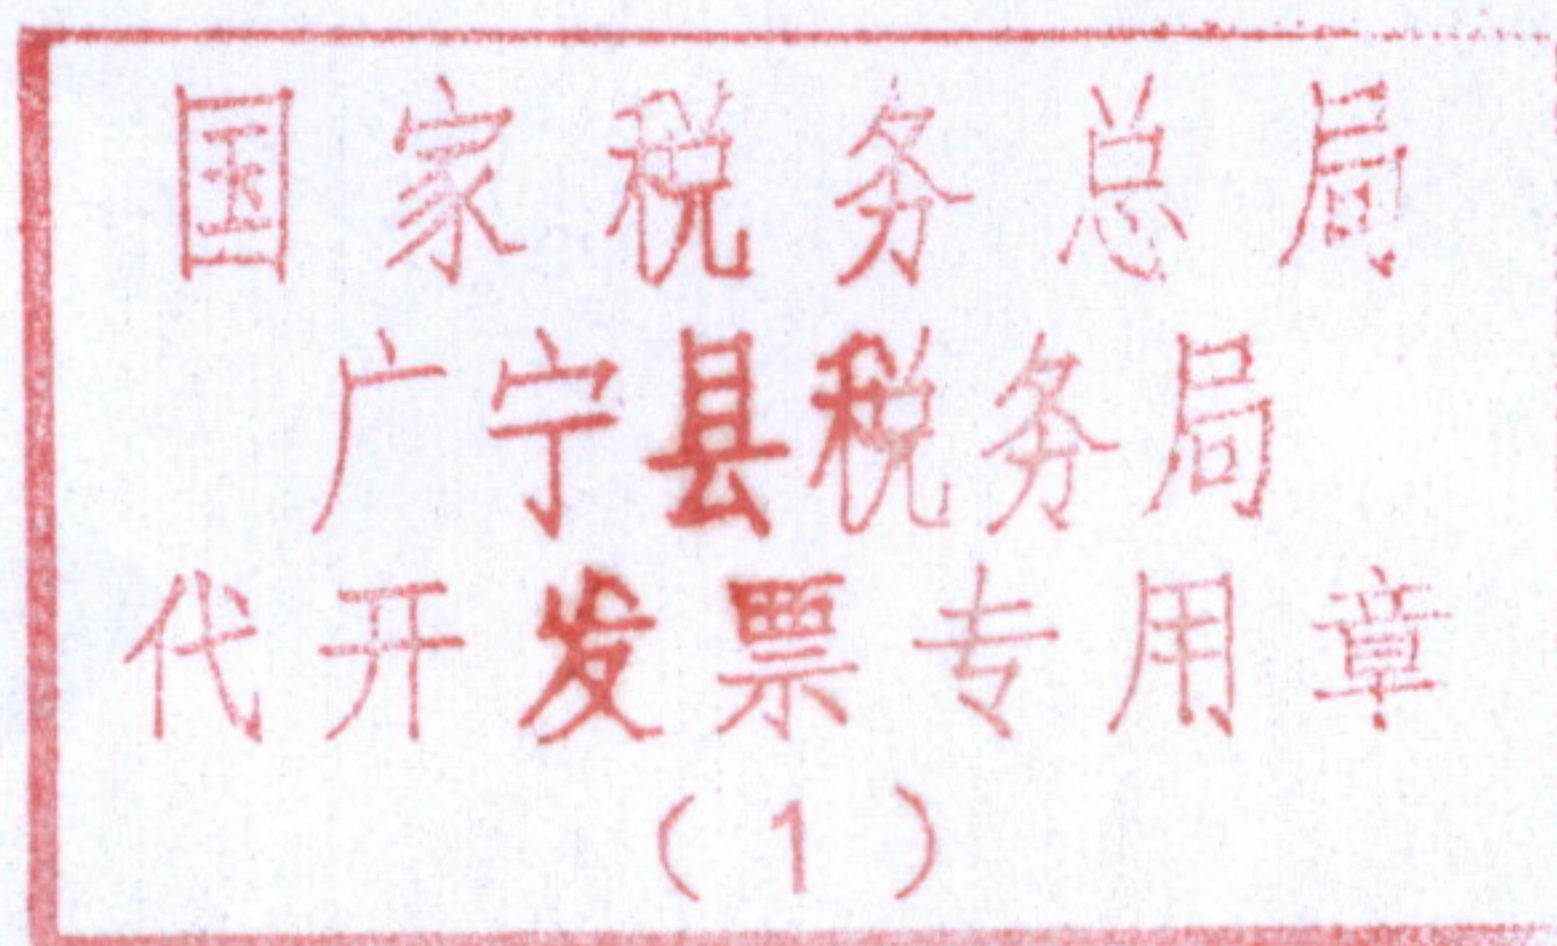 国家税务总局
广宁县税务局
代开发票专用章
(1)